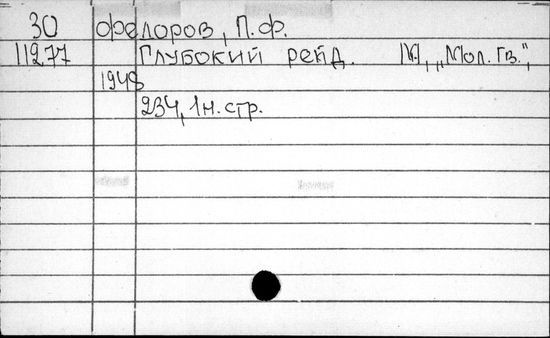 30 Федоров, П.Ф.
11277 Глубокий рейд. М., „Мол. Гв.",
1948
234, 1н. стр.